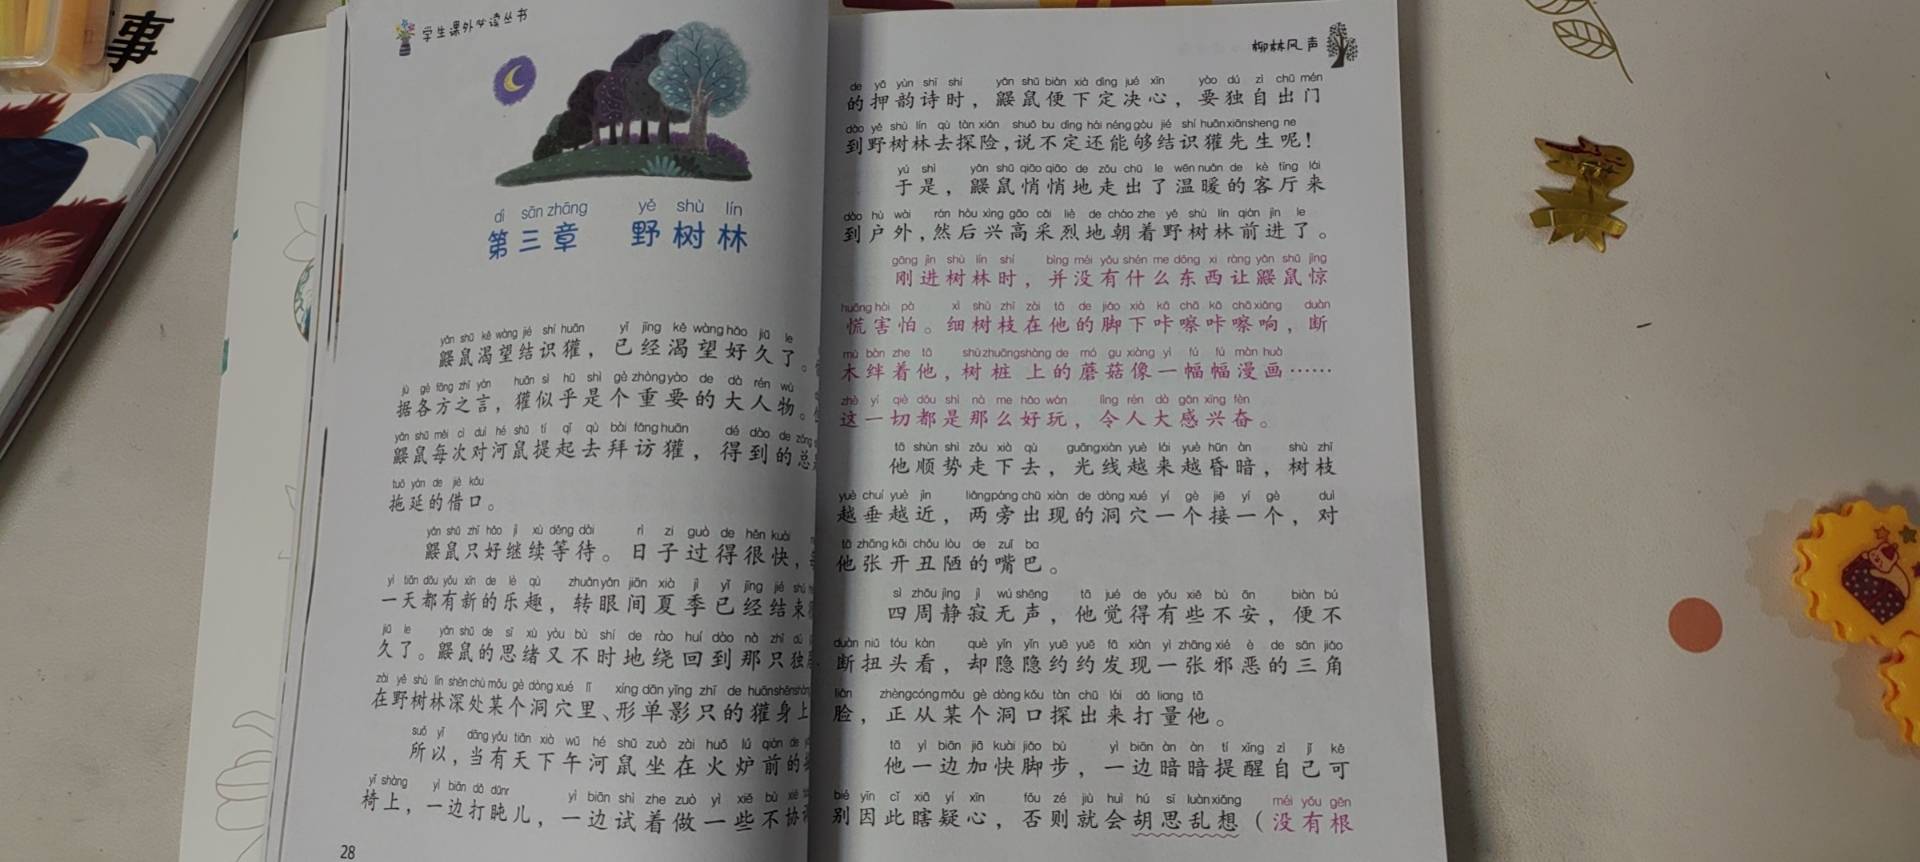 事
学生课外必读丛书
dì sān zhāng yě shù lín
第三章 野树林
yǎn shǔ kě wàng jié shí huān yǐ jīng kě wàng hǎo jiǔ le
鼹鼠渴望结识獾，已经渴望好久了。
jù gè fāng zhī yán huān sì hū shì gè zhòng yào de dà rén wù
据各方之言，獾似乎是个重要的大人物。
yǎn shǔ měi cì duì hé shǔ tí qǐ qù bài fǎng huān dé dào de zǒng
鼹鼠每次对河鼠提起去拜访獾，得到的总
tuō yán de jiè kǒu
拖延的借口。
yǎn shǔ zhǐ hǎo jì xù děng dài rì zi guò de hěn kuài
鼹鼠只好继续等待。日子过得很快，
yì tiān dōu yǒu xīn de lè qù zhuǎn yǎn jiān xià jì yǐ jīng jié shù
一天都有新的乐趣，转眼间夏季已经结束
jiǔ le yǎn shǔ de sī xù yòu bù shí de rào huí dào nà zhī dú
久了。鼹鼠的思绪又不时地绕回到那只独
zài yě shù lín shēn chù mǒu gè dòng xué lǐ xíng dān yǐng zhī de huān shēn shàng
在野树林深处某个洞穴里、形单影只的獾身上
suǒ yǐ dāng yǒu tiān xià wǔ hé shǔ zuò zài huǒ lú qián de
所以，当有天下午河鼠坐在火炉前的
yǐ shàng yì biān dǎ dǔnr yì biān shì zhe zuò yì xiē bù xié
椅上，一边打盹儿，一边试着做一些不协
28
柳林风声
de yā yùn shī shí yǎn shǔ biàn xià dìng jué xīn yào dú zì chū mén
的押韵诗时，鼹鼠便下定决心，要独自出门
dào yě shù lín qù tàn xiǎn shuō bu dìng hái néng gòu jié shí huān xiān sheng ne
到野树林去探险，说不定还能够结识獾先生呢！
yú shì yǎn shǔ qiāo qiāo de zǒu chū le wēn nuǎn de kè tīng lái
于是，鼹鼠悄悄地走出了温暖的客厅来
dào hù wài rán hòu xìng gāo cǎi liè de cháo zhe yě shù lín qián jìn le
到户外，然后兴高采烈地朝着野树林前进了。
gāng jìn shù lín shí bìng méi yǒu shén me dōng xi ràng yǎn shǔ jīng
刚进树林时，并没有什么东西让鼹鼠惊
huāng hài pà xì shù zhī zài tā de jiǎo xià kā chā kā chā xiǎng duàn
慌害怕。细树枝在他的脚下咔嚓咔嚓响，断
mù bàn zhe tā shù zhuāng shàng de mó gu xiàng yì fú fú màn huà
木绊着他，树桩上的蘑菇像一幅幅漫画……
zhè yí qiè dōu shì nà me hǎo wán lìng rén dà gǎn xīng fèn
这一切都是那么好玩，令人大感兴奋。
tā shùn shì zǒu xià qù guāng xiàn yuè lái yuè hūn àn shù zhī
他顺势走下去，光线越来越昏暗，树枝
yuè chuí yuè jìn liǎng páng chū xiàn de dòng xué yí gè jiē yí gè duì
越垂越近，两旁出现的洞穴一个接一个，对
tā zhāng kāi chǒu lòu de zuǐ ba
他张开丑陋的嘴巴。
sì zhōu jìng jì wú shēng tā jué de yǒu xiē bù ān biàn bú
四周静寂无声，他觉得有些不安，便不
duàn niǔ tóu kàn què yǐn yǐn yuē yuē fā xiàn yì zhāng xié è de sān jiǎo
断扭头看，却隐隐约约发现一张邪恶的三角
liǎn zhèng cóng mǒu gè dòng kǒu tàn chū lái dǎ liang tā
脸，正从某个洞口探出来打量他。
tā yì biān jiā kuài jiǎo bù yì biān àn àn tí xǐng zì jǐ kě
他一边加快脚步，一边暗暗提醒自己可
bié yīn cǐ xiā yí xīn fǒu zé jiù huì hú sī luàn xiǎng méi yǒu gēn
别因此瞎疑心，否则就会胡思乱想（没有根